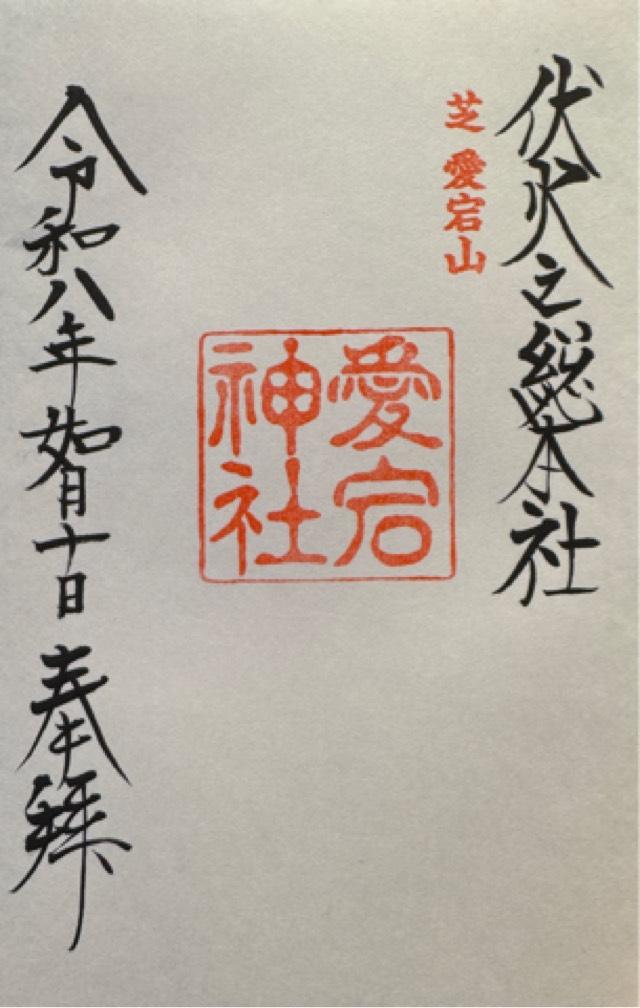 伏火之総本社
芝 愛宕山
愛宕
神社
令和八年如月十日 奉拝